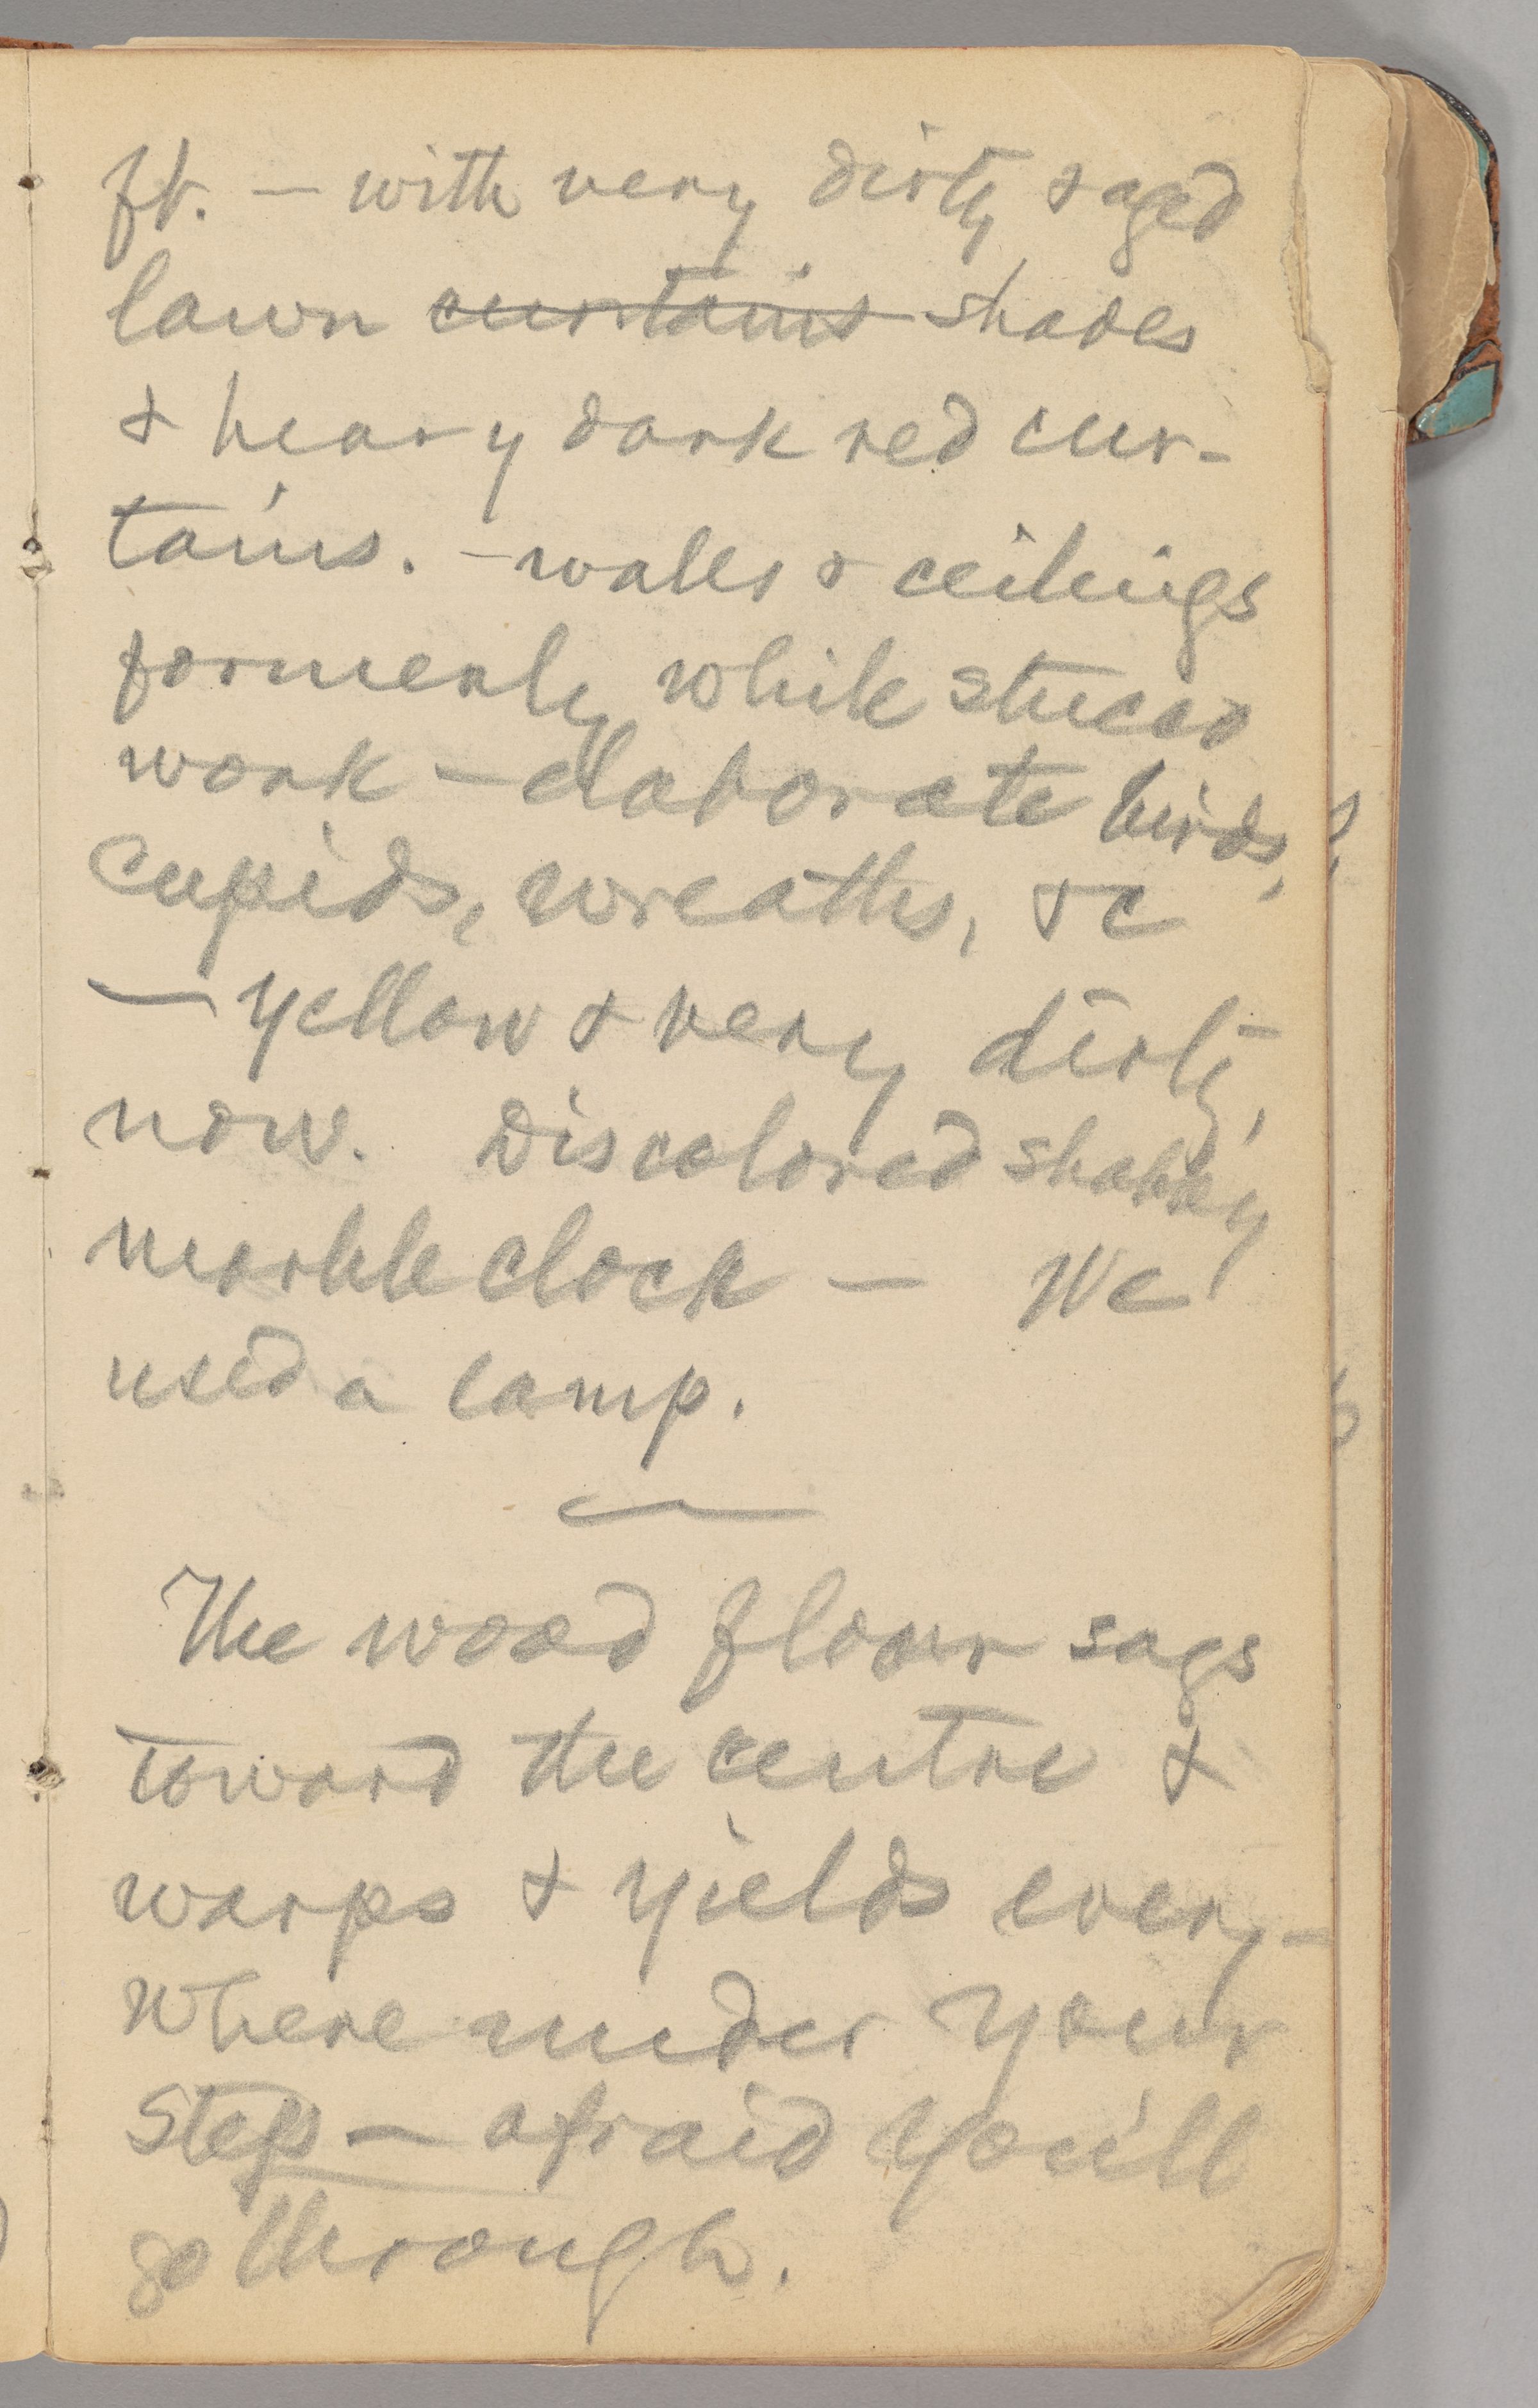 ft. — with very dirty & aged
lawn curtains shades
& heavy dark red cur-
tains. — walls & ceilings
formerly white stucco
work — elaborate birds,
cupids, wreaths, &c
— yellow & very dirty,
now. Discolored shabby
marble clock — We
used a lamp.
The wood floor sags
toward the centre &
warps & yields every-
where under your
step — afraid you'll
go through.